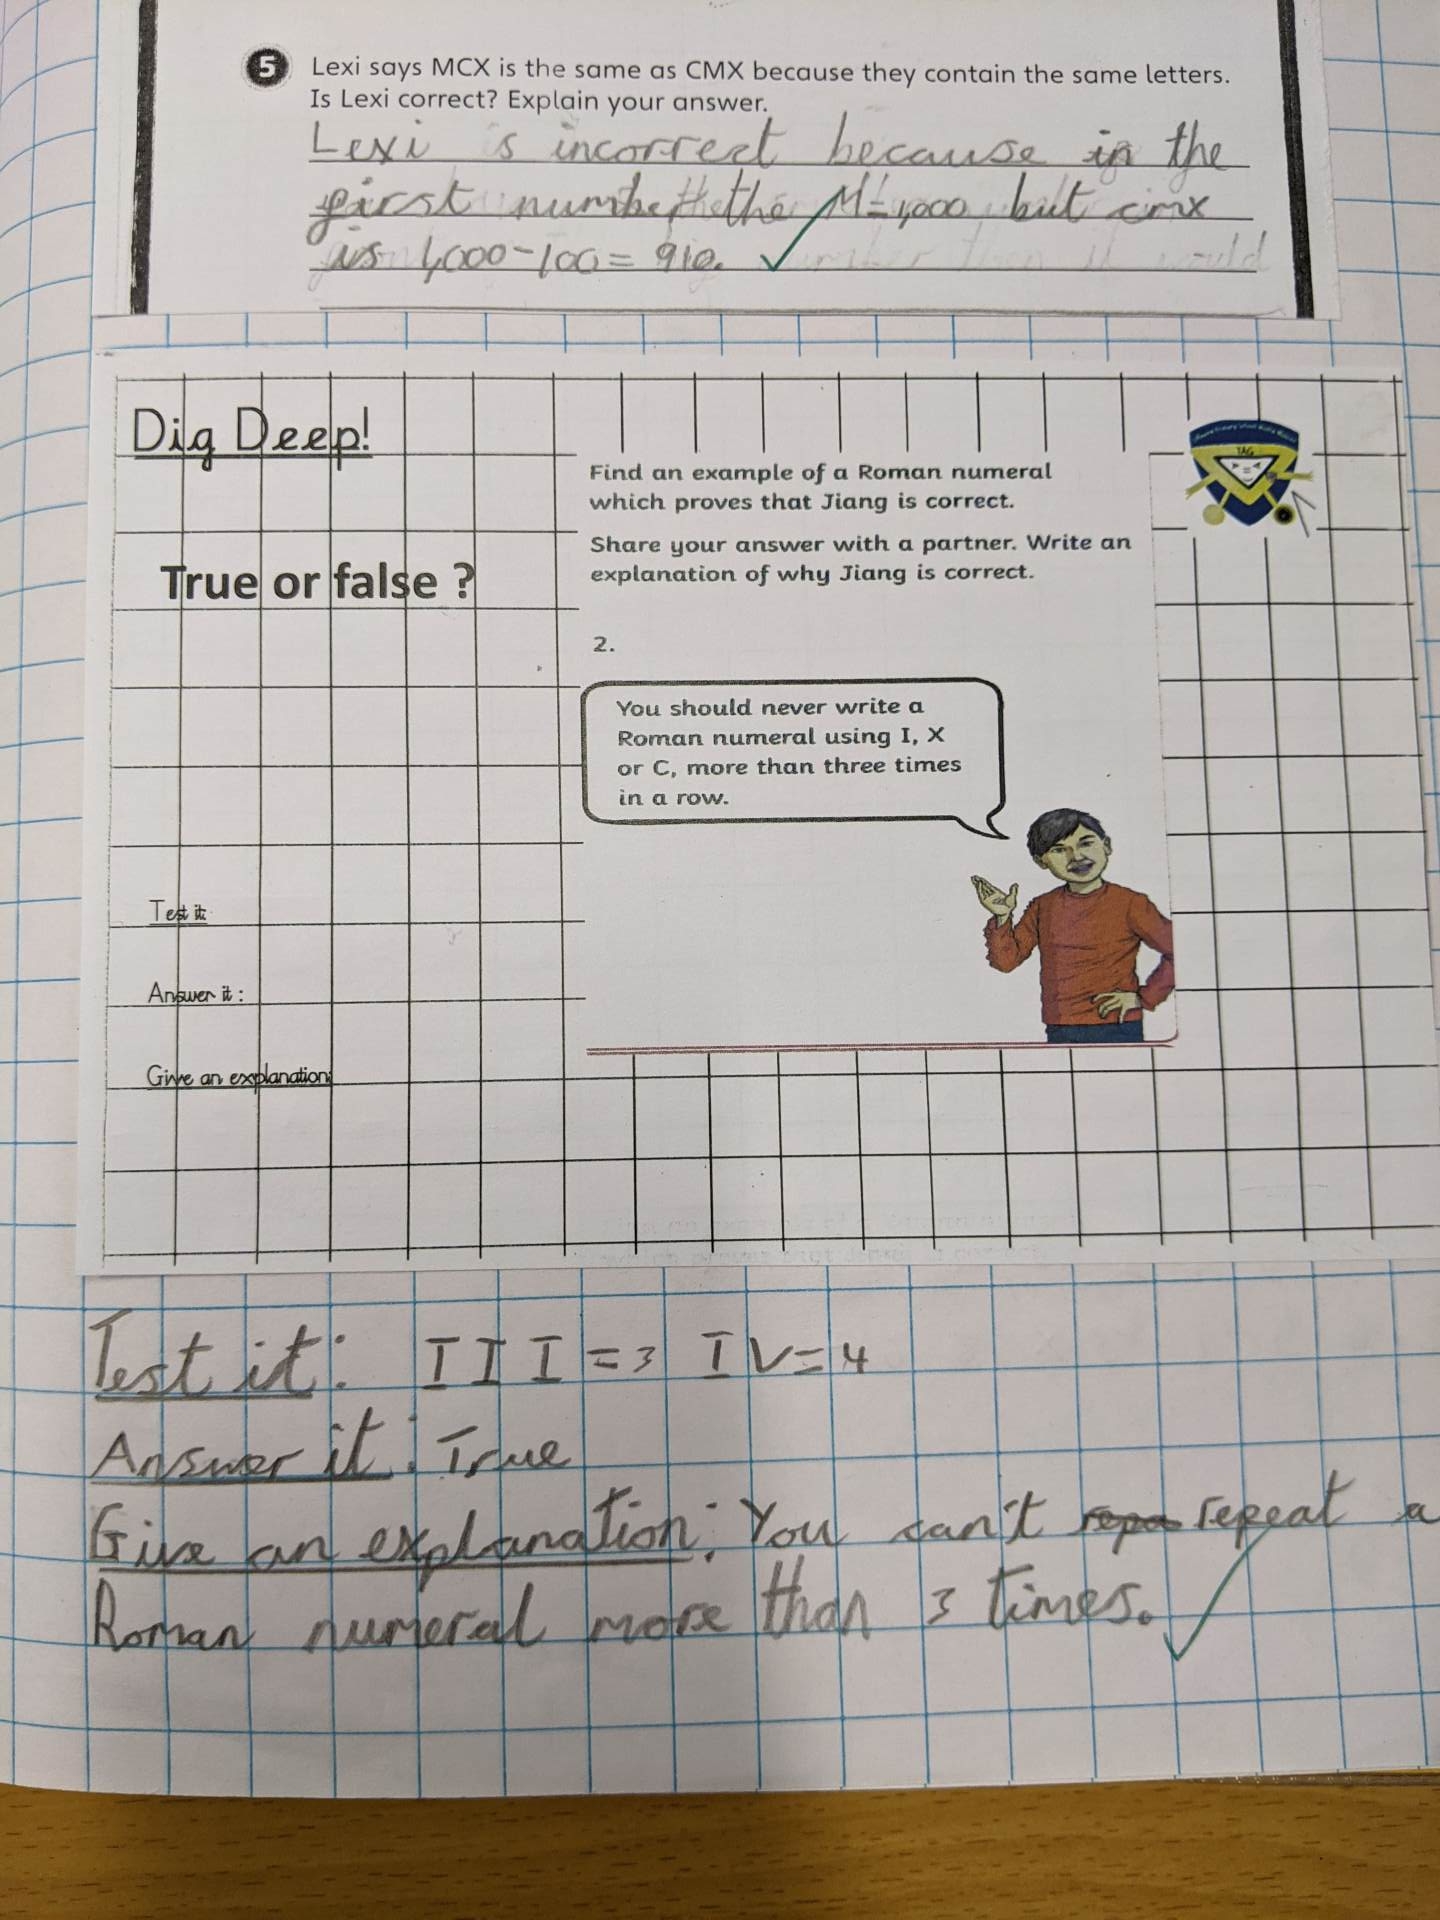 5 Lexi says MCX is the same as CMX because they contain the same letters.
Is Lexi correct? Explain your answer.
Lexi is incorrect because in the
first number the M=1,000 but cmx
is 1,000-100= 910.
Dig Deep!
TAG
Find an example of a Roman numeral
which proves that Jiang is correct.
Share your answer with a partner. Write an
explanation of why Jiang is correct.
True or false ?
2.
You should never write a
Roman numeral using I, X
or C, more than three times
in a row.
Test it:
Answer it :
Give an explanation:
Test it: III=3 IV=4
Answer it: True
Give an explanation: You can't repeat a
Roman numeral more than 3 times.